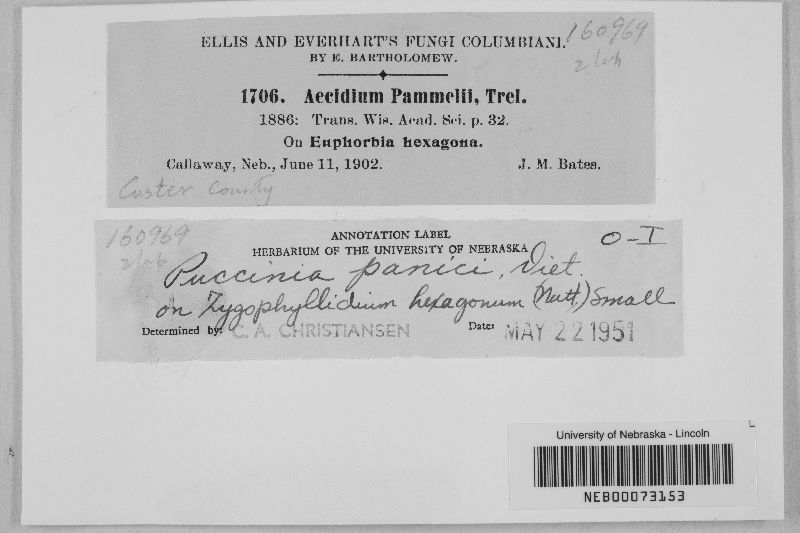 ELLIS AND EVERHART'S FUNGI COLUMBIANI.
160969
BY E. BARTHOLOMEW.
1706. Aecidium Pammelii, Trel.
1886: Trans. Wis. Acad. Sci. p. 32.
On Euphorbia hexagona.
Callaway, Neb., June 11, 1902. J. M. Bates.
Custer County
160969
ANNOTATION LABEL
HERBARIUM OF THE UNIVERSITY OF NEBRASKA
O-I
Puccinia panici, Diet.
on Zygophyllidium hexagonum (Nutt.) Small
Determined by: C. A. CHRISTIANSEN Date: MAY 22 1951
University of Nebraska - Lincoln
NEB00073153